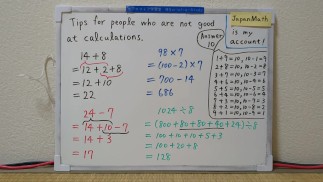 Tips for people who are not good
at calculations.
JapanMath
is my
account!
Answer
10
14 + 8
= 12 + 2 + 8
= 12 + 10
= 22
98 × 7
= (100 - 2) × 7
= 700 - 14
= 686
24 - 7
= 14 + 10 - 7
= 14 + 3
= 17
1024 ÷ 8
= (800 + 80 + 80 + 40 + 24) ÷ 8
= 100 + 10 + 10 + 5 + 3
= 100 + 20 + 8
= 128
1 + 9 = 10, 10 - 1 = 9
2 + 8 = 10, 10 - 2 = 8
3 + 7 = 10, 10 - 3 = 7
4 + 6 = 10, 10 - 4 = 6
5 + 5 = 10, 10 - 5 = 5
6 + 4 = 10, 10 - 6 = 4
7 + 3 = 10, 10 - 7 = 3
8 + 2 = 10, 10 - 8 = 2
9 + 1 = 10, 10 - 9 = 1